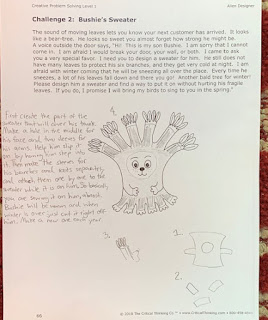 Creative Problem Solving Level 1
Alien Designer
Challenge 2: Bushie's Sweater
The sound of moving leaves lets you know your next customer has arrived. It looks
like a bear-tree. He looks so sweet you almost forget how strong he might be.
A voice outside the door says, "Hi! This is my son Bushie. I am sorry that I cannot
come in. I am afraid I would break your door, your wall, or both. I came to ask
you a very special favor. I need you to design a sweater for him. He still does not
have many leaves to protect his six branches, and they get very cold at night. I am
afraid with winter coming that he will be sneezing all over the place. Every time he
sneezes, a lot of his leaves fall down and there you go! Another bald tree for winter!
Please design him a sweater and find a way to put it on without hurting his fragile
leaves. If you do, I promise I will bring my birds to sing to you in the spring."
First create the part of the
sweater that will cover his
Make a hole in the middle for
his face and two sleeves for
his arms. Help him slip it
on by having him step into
it. Then make the sleeves for
his branches and
attach them one by one to the
sweater while it is on him. So basically,
you are sewing it on him,
Bushie will be warm and when
winter is over just cut it right off
him. Make a new one each year.
4.
3.
1.
2.
66
© 2016 The Critical Thinking Co.™ • www.CriticalThinking.com • 800-458-4849